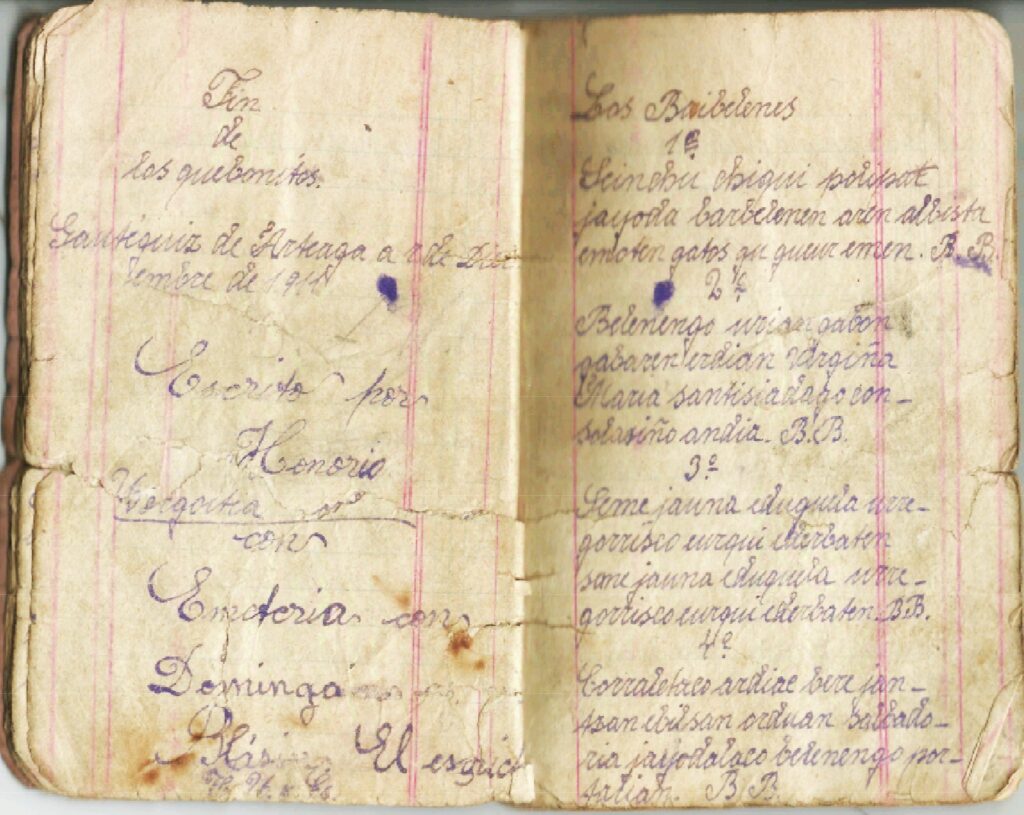 Fin
de
los quebonitos.
Gautéguiz de Arteaga a 1 de Dici
embre de 191
Escrito por
Honorio
con
Emeteria con
Dominga
Blási El escrit
Los Baibelenes
1º
Seinchu chiqui polipat
jayoda barbelenen aren albista
emoten gatos gu gueur emen. B. B.
2º
Belenengo urian gabon
gabaren erdian Virgiña
Maria santisiadago con-
solasiño andia. B. B.
3º
Seme jauna eduguela urre-
gorrisco curqui ederbaten
seme jauna eduguela urre-
gorrisco curqui ederbaten. B.B.
4º
Corraletaco ardiac bere jan-
tzan ebilsan orduan Salbado-
ria jayodalaco belenengo por-
talian. B B.